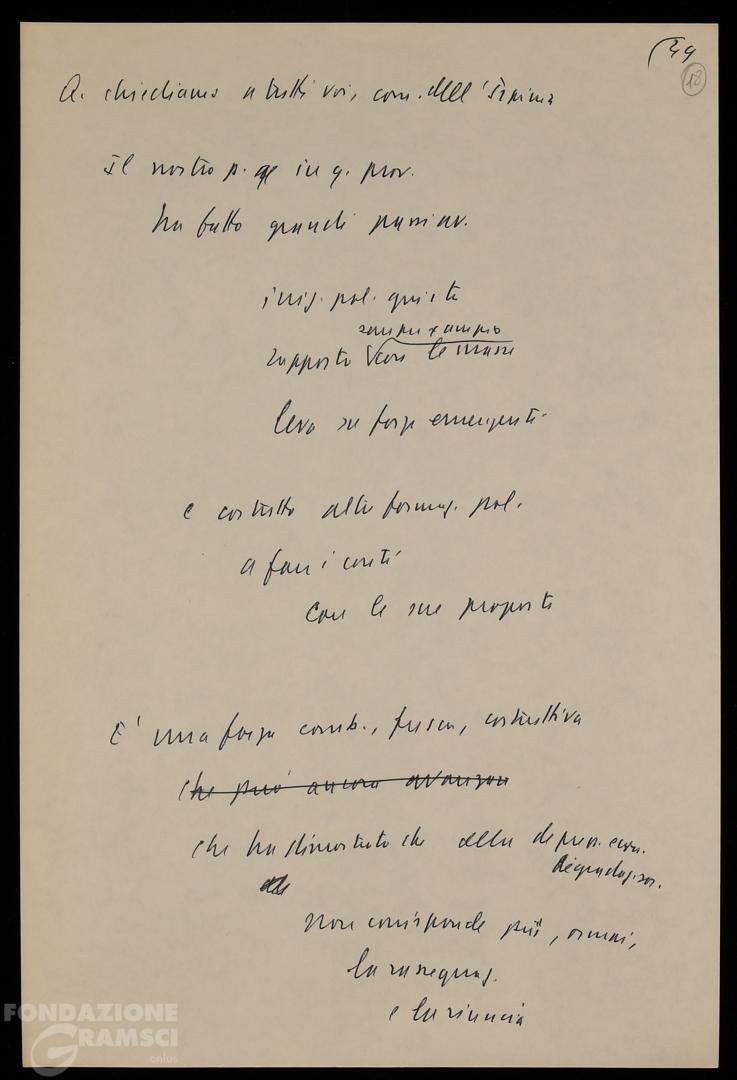 44
18
A. chiediamo a tutti voi, com. dell'Irpinia
Il nostro p. in q. prov.
ha fatto grandi passi av.
iniz. pol. qui e là
sempre + ampio
rapporto con le masse
leva su forze emergenti
e costretto altre formaz. pol.
a fare i conti
con le sue proposte
E' una forza comb., fresca, costruttiva
che può ancora avanzare
che ha dimostrato che alla depress. econ.
degradaz. soc.
non corrisponde più, ormai,
la rassegnaz.
e la rinuncia
FONDAZIONE
GRAMSCI
onlus